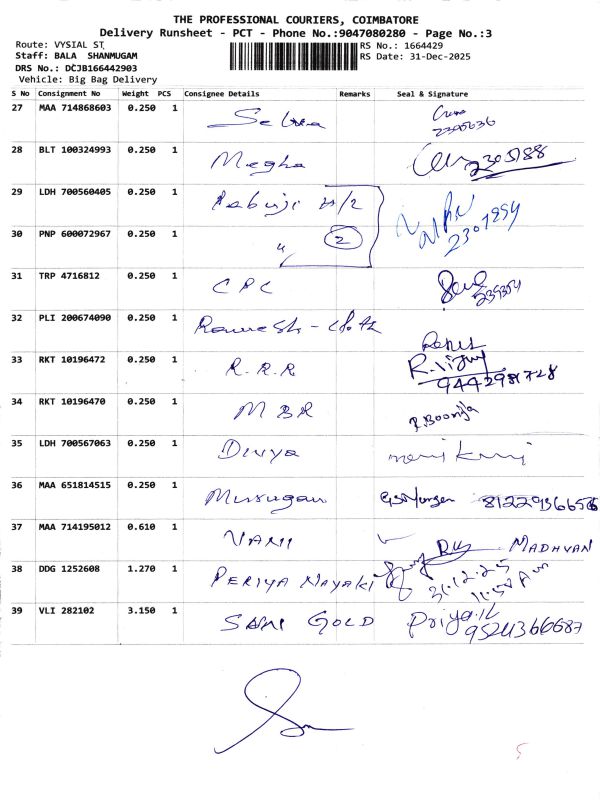 THE PROFESSIONAL COURIERS, COIMBATORE
Delivery Runsheet - PCT - Phone No.:9047080280 - Page No.:3
Route: VYSIAL ST
Staff: BALA SHANMUGAM
DRS No.: DCJB166442903
Vehicle: Big Bag Delivery
RS No.: 1664429
RS Date: 31-Dec-2025
S No Consignment No Weight PCS Consignee Details Remarks Seal & Signature
27 MAA 714868603 0.250 1 Selva
28 BLT 100324993 0.250 1 Megha
29 LDH 700560405 0.250 1
30 PNP 600072967 0.250 1 " 2
31 TRP 4716812 0.250 1 CPC
32 PLI 200674090 0.250 1 Ramesh -
33 RKT 10196472 0.250 1 R.R.R 9442981728
34 RKT 10196470 0.250 1 MBR
35 LDH 700567063 0.250 1 Divya
36 MAA 651814515 0.250 1 Murugan
37 MAA 714195012 0.610 1 VANI MADHVAN
38 DDG 1252608 1.270 1 PERIYA NAYAKI 31.12.25
39 VLI 282102 3.150 1 GOLD